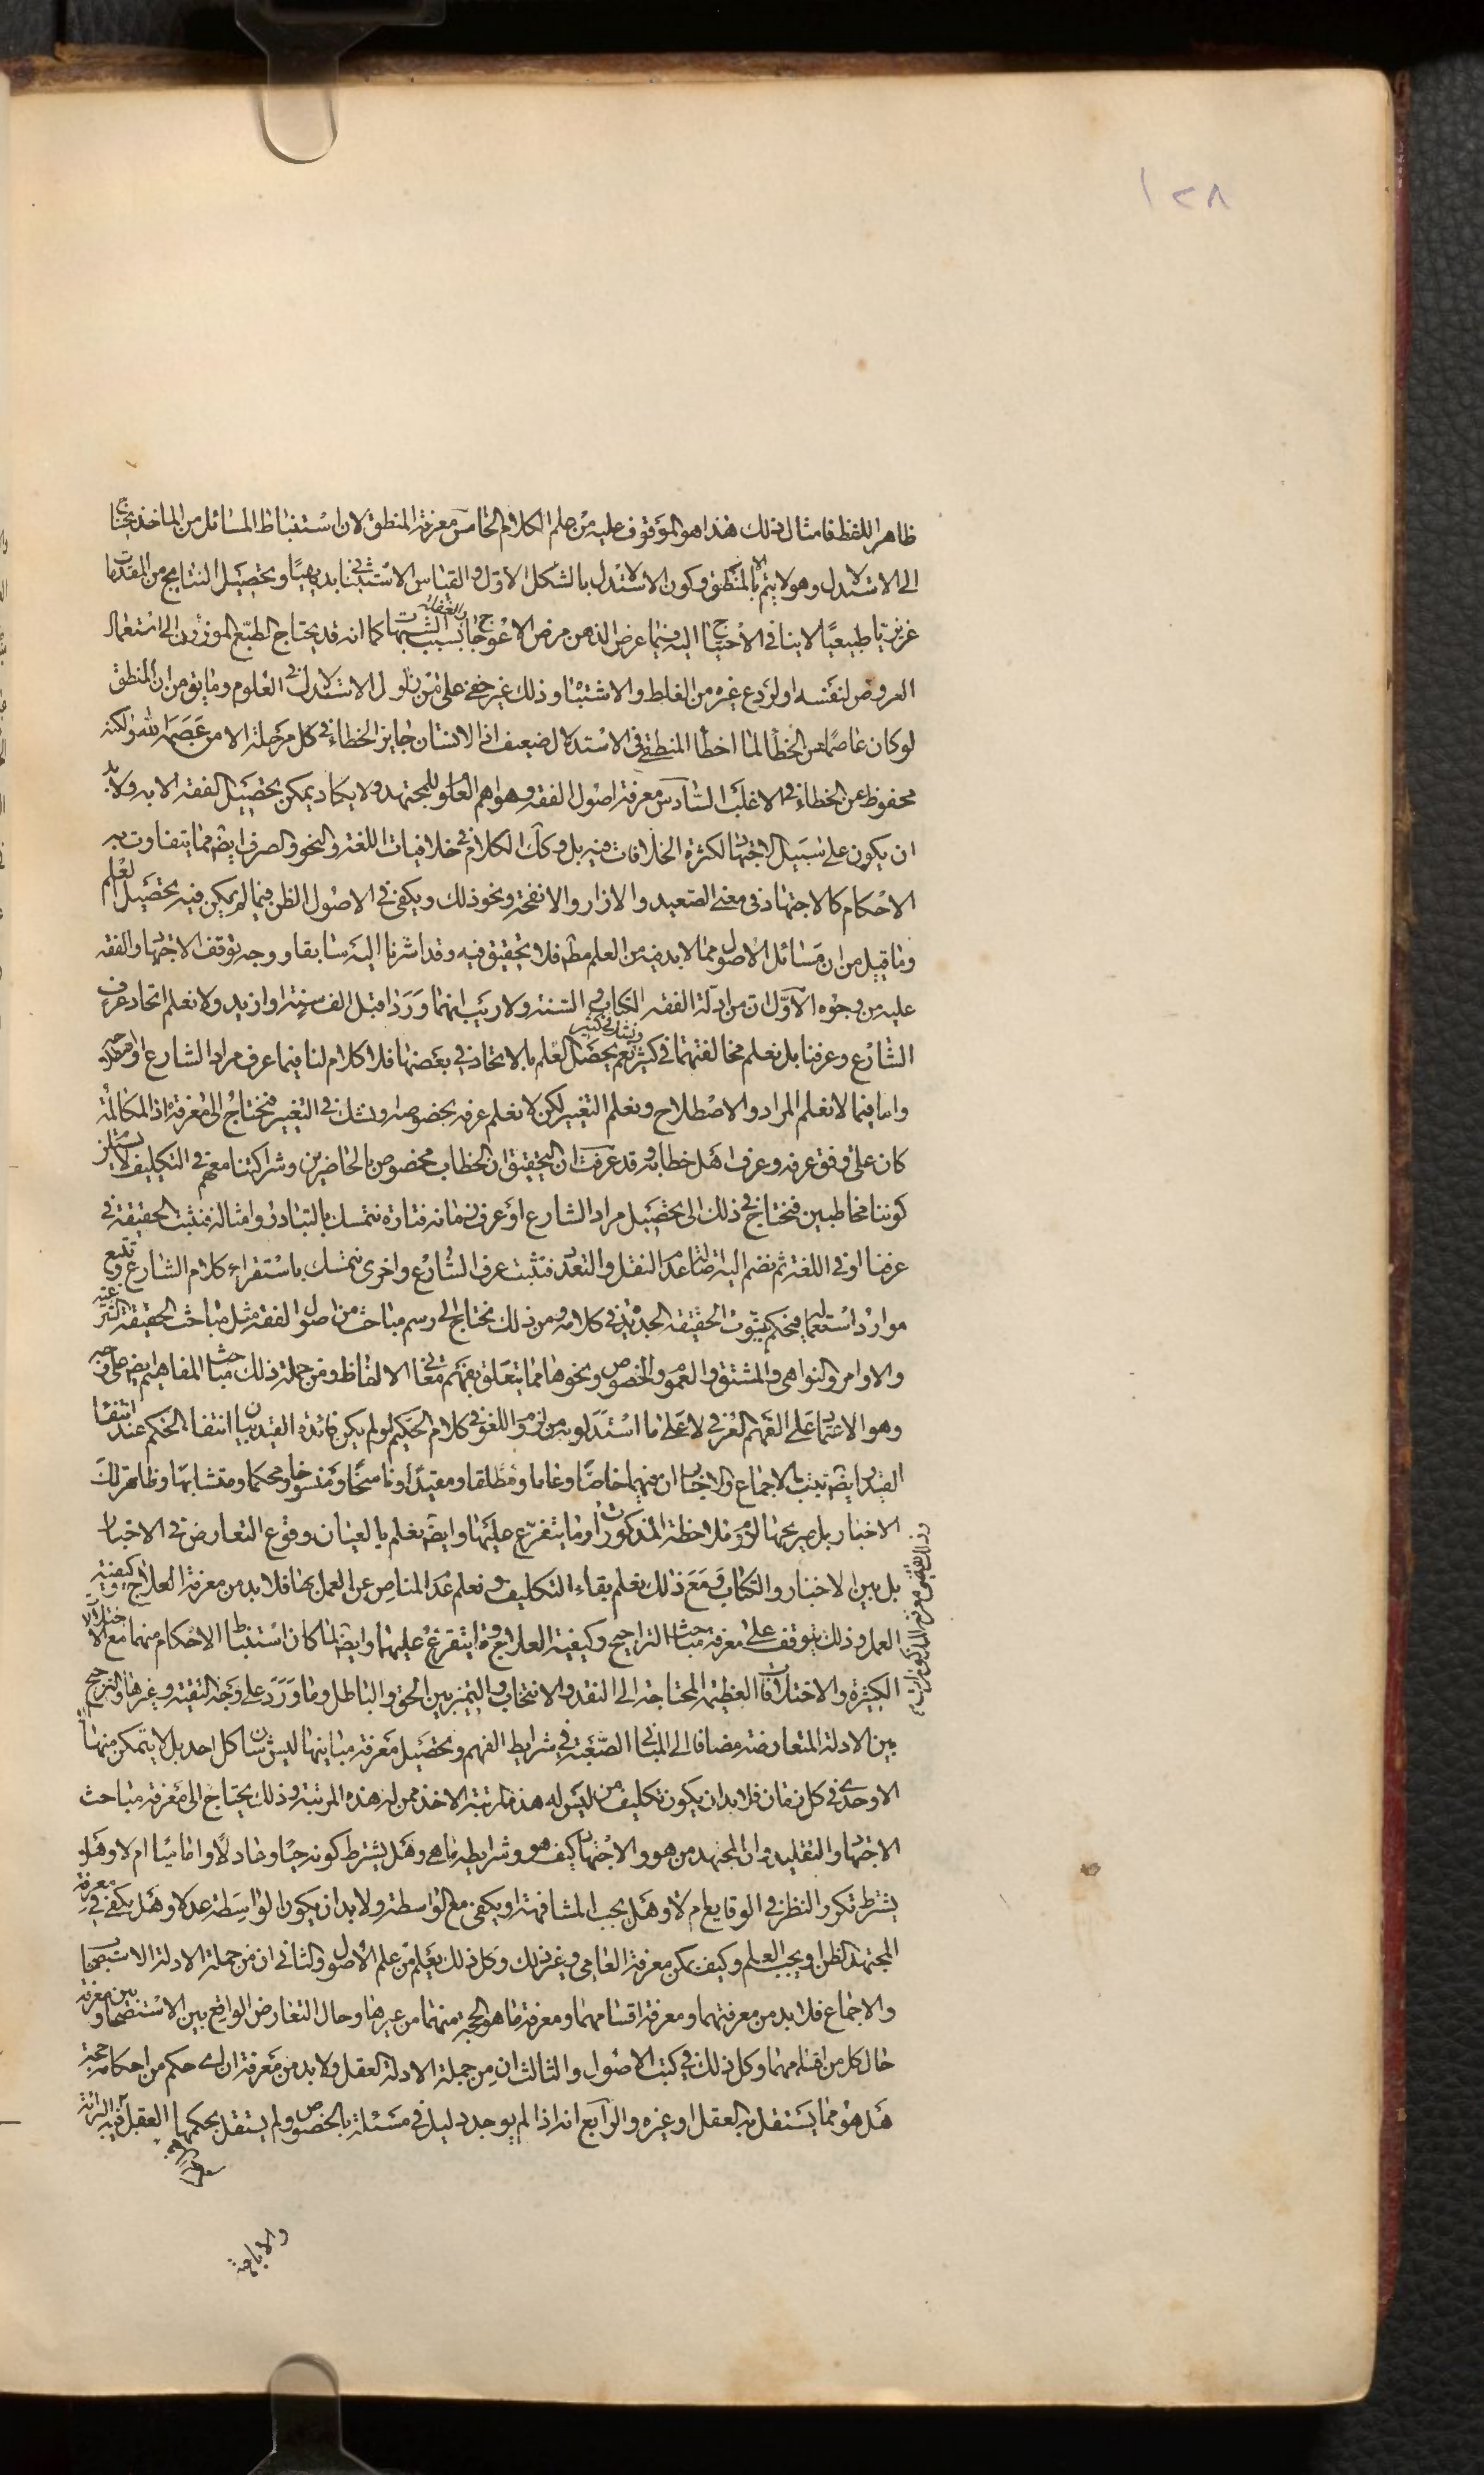 ١٢٨
ظاهر اللفظ فامثال ذلك هذا هو الموقوف عليه من علم الكلام الخامس معرفة المنطق لان استنباط المسائل من الماخذ يحتاج
الى الاستدلال وهو لا يتم الا بالمنطق وكون الاستدلال بالشكل الاول والقياس الاستثنائي بديهيا وتحصيل النتايج من المقدمات
غريزيا طبيعيا لا ينافي الاحتياج اليه فيما عرض الذهن مرض الاعوجاج بسبب الشبهات والغفلة كما انه قد يحتاج الطبع الموزون الى استعمال
العروض لنفسه او لردع غيره من الغلط والاشتباه وذلك غير خفي على من زاول الاستدلال في العلوم وما يق من ان المنطق
لو كان عاصما عن الخطأ لما اخطأ المنطقي في الاستدلال ضعيف اذ الانسان جايز الخطاء في كل مرحلة الا من عصمه الله ولكنه
محفوظ عن الخطاء في الاغلب السادس معرفة اصول الفقه وهو اهم العلوم للمجتهد ولا يكاد يمكن تحصيل الفقه الا به ولا بد
ان يكون على سبيل الاجتهاد لكثرة الخلافات فيه بل وكك الكلام في خلافيات اللغة والنحو والصرف ايضا مما يتفاوت به
الاحكام كالاجتهاد في معنى الصعيد والازار والانفحة ونحو ذلك ويكفي في الاصول الظن فيما لم يمكن فيه تحصيل العلم
وما قيل من ان مسائل الاصول مما لا بد فيه من العلم مط فلا تحقيق فيه وقد اشرنا اليه سابقا ووجه توقف الاجتهاد والفقه
عليه من وجوه الاول ان من ادلة الفقه الكتاب والسنة ولا ريب انهما وردا قبل الف سنة او ازيد ولا نعلم اتحاد عرف
الشارع وعرفنا بل نعلم مخالفتهما في كثير ونشك في كثير نعم يحصل العلم بالاتحاد في بعضها فلا كلام لنا فيما عرف مراد الشارع او اصطلاحه
واما فيما لا نعلم المراد والاصطلاح ونعلم التغير لكن لا نعلم عرفه بخصوصه او نشك في التغير فنحتاج الى معرفة اذ المكالمة
كان على وفق عرفه وعرف اهل خطابه وقد عرفت ان التحقيق ان الخطاب مخصوص بالحاضرين وشراكتنا معهم في التكليف لا يستلزم
كوننا مخاطبين فنحتاج في ذلك الى تحصيل مراد الشارع او عرف زمانه فتارة نتمسك بالتبادر وامثاله فنثبت الحقيقة في
عرفنا او في اللغة ثم نضم اليه اصالة عدم النقل والتعدد فنثبت عرف الشارع واخرى نتمسك باستقراء كلام الشارع وتتبع
موارد استعماله فنحكم بثبوت الحقيقة الجديدة في كلامه ومن ذلك نحتاج الى رسم مباحث من اصول الفقه مثل مباحث الحقيقة الشرعية
والاوامر والنواهي والمشتق والعموم والخصوص ونحوها مما يتعلق بفهم معاني الالفاظ ومن جملة ذلك مباحث المفاهيم
وهو الاعتماد على الفهم العرفي لا على ما استدلوا به من لزوم اللغو في كلام الحكيم لو لم يكن فائدة القيد بيان انتفاء الحكم عند انتفاء
القيد وايضا ثبت بالاجماع والاخبار ان فيهما خاصا وعاما ومطلقا ومقيدا وناسخا ومنسوخا ومحكما ومتشابها وظاهر تلك
الاخبار بل صريحها لزوم ملاحظة المذكورات وما يتفرع عليها وايضا نعلم بالعيان وقوع التعارض في الاخبار
بل بين الاخبار والكتاب ومع ذلك نعلم بقاء التكليف ونعلم عدم المناص عن العمل بها فلا بد من معرفة العلاج وكيفية
العمل وذلك يتوقف على معرفة مباحث التراجيح وكيفية العلاج وما يتفرع عليهما وايضا لما كان استنباط الاحكام منهما مع الاختلالات
الكثيرة والاختلافات العظيمة المحتاجة الى النقد والانتخاب والتميز بين الحق والباطل وما ورد على وجه التقية وغيرها والترجيح
بين الادلة المتعارضة مضافا الى المباني الصعبة في شرايط الفهم وتحصيل معرفة مباينها ليس شان كل احد بل لا يتمكن منها الا
الاوحدي في كل زمان فلا بد ان يكون تكليف من ليس له هذه المرتبة الاخذ ممن له هذه المرتبة وذلك يحتاج الى معرفة مباحث
الاجتهاد والتقليد وان المجتهد من هو والاجتهاد كيف هو وشرايطه ما هي وهل يشترط كونه حيا وعادلا واماميا ام لا وهل
يشترط تكرر النظر في الوقايع ام لا وهل يجب المشافهة او يكفي مع الواسطة ولا بد ان يكون الواسطة عدلا وهل يكفي في معرفة
المجتهد الظن او يجب العلم وكيف يمكن معرفة العامي وغير ذلك وكل ذلك يعلم من علم الاصول والثاني ان من جملة الادلة الاستصحاب
والاجماع فلا بد من معرفتهما ومعرفة اقسامهما ومعرفة ما هو الحجة منهما من غيرها وحال التعارض الواقع بين الاستصحابين ومعرفة
حال كل من اقسامهما وكل ذلك في كتب الاصول والثالث ان من جملة الادلة العقل ولا بد من معرفة ان اي حكم من احكامه حجة
هل هو مما يستقل به العقل او غيره والرابع انه اذا لم يوجد دليل في مسئلة بالخصوص ولم يستقل بحكمها العقل
والاباحة